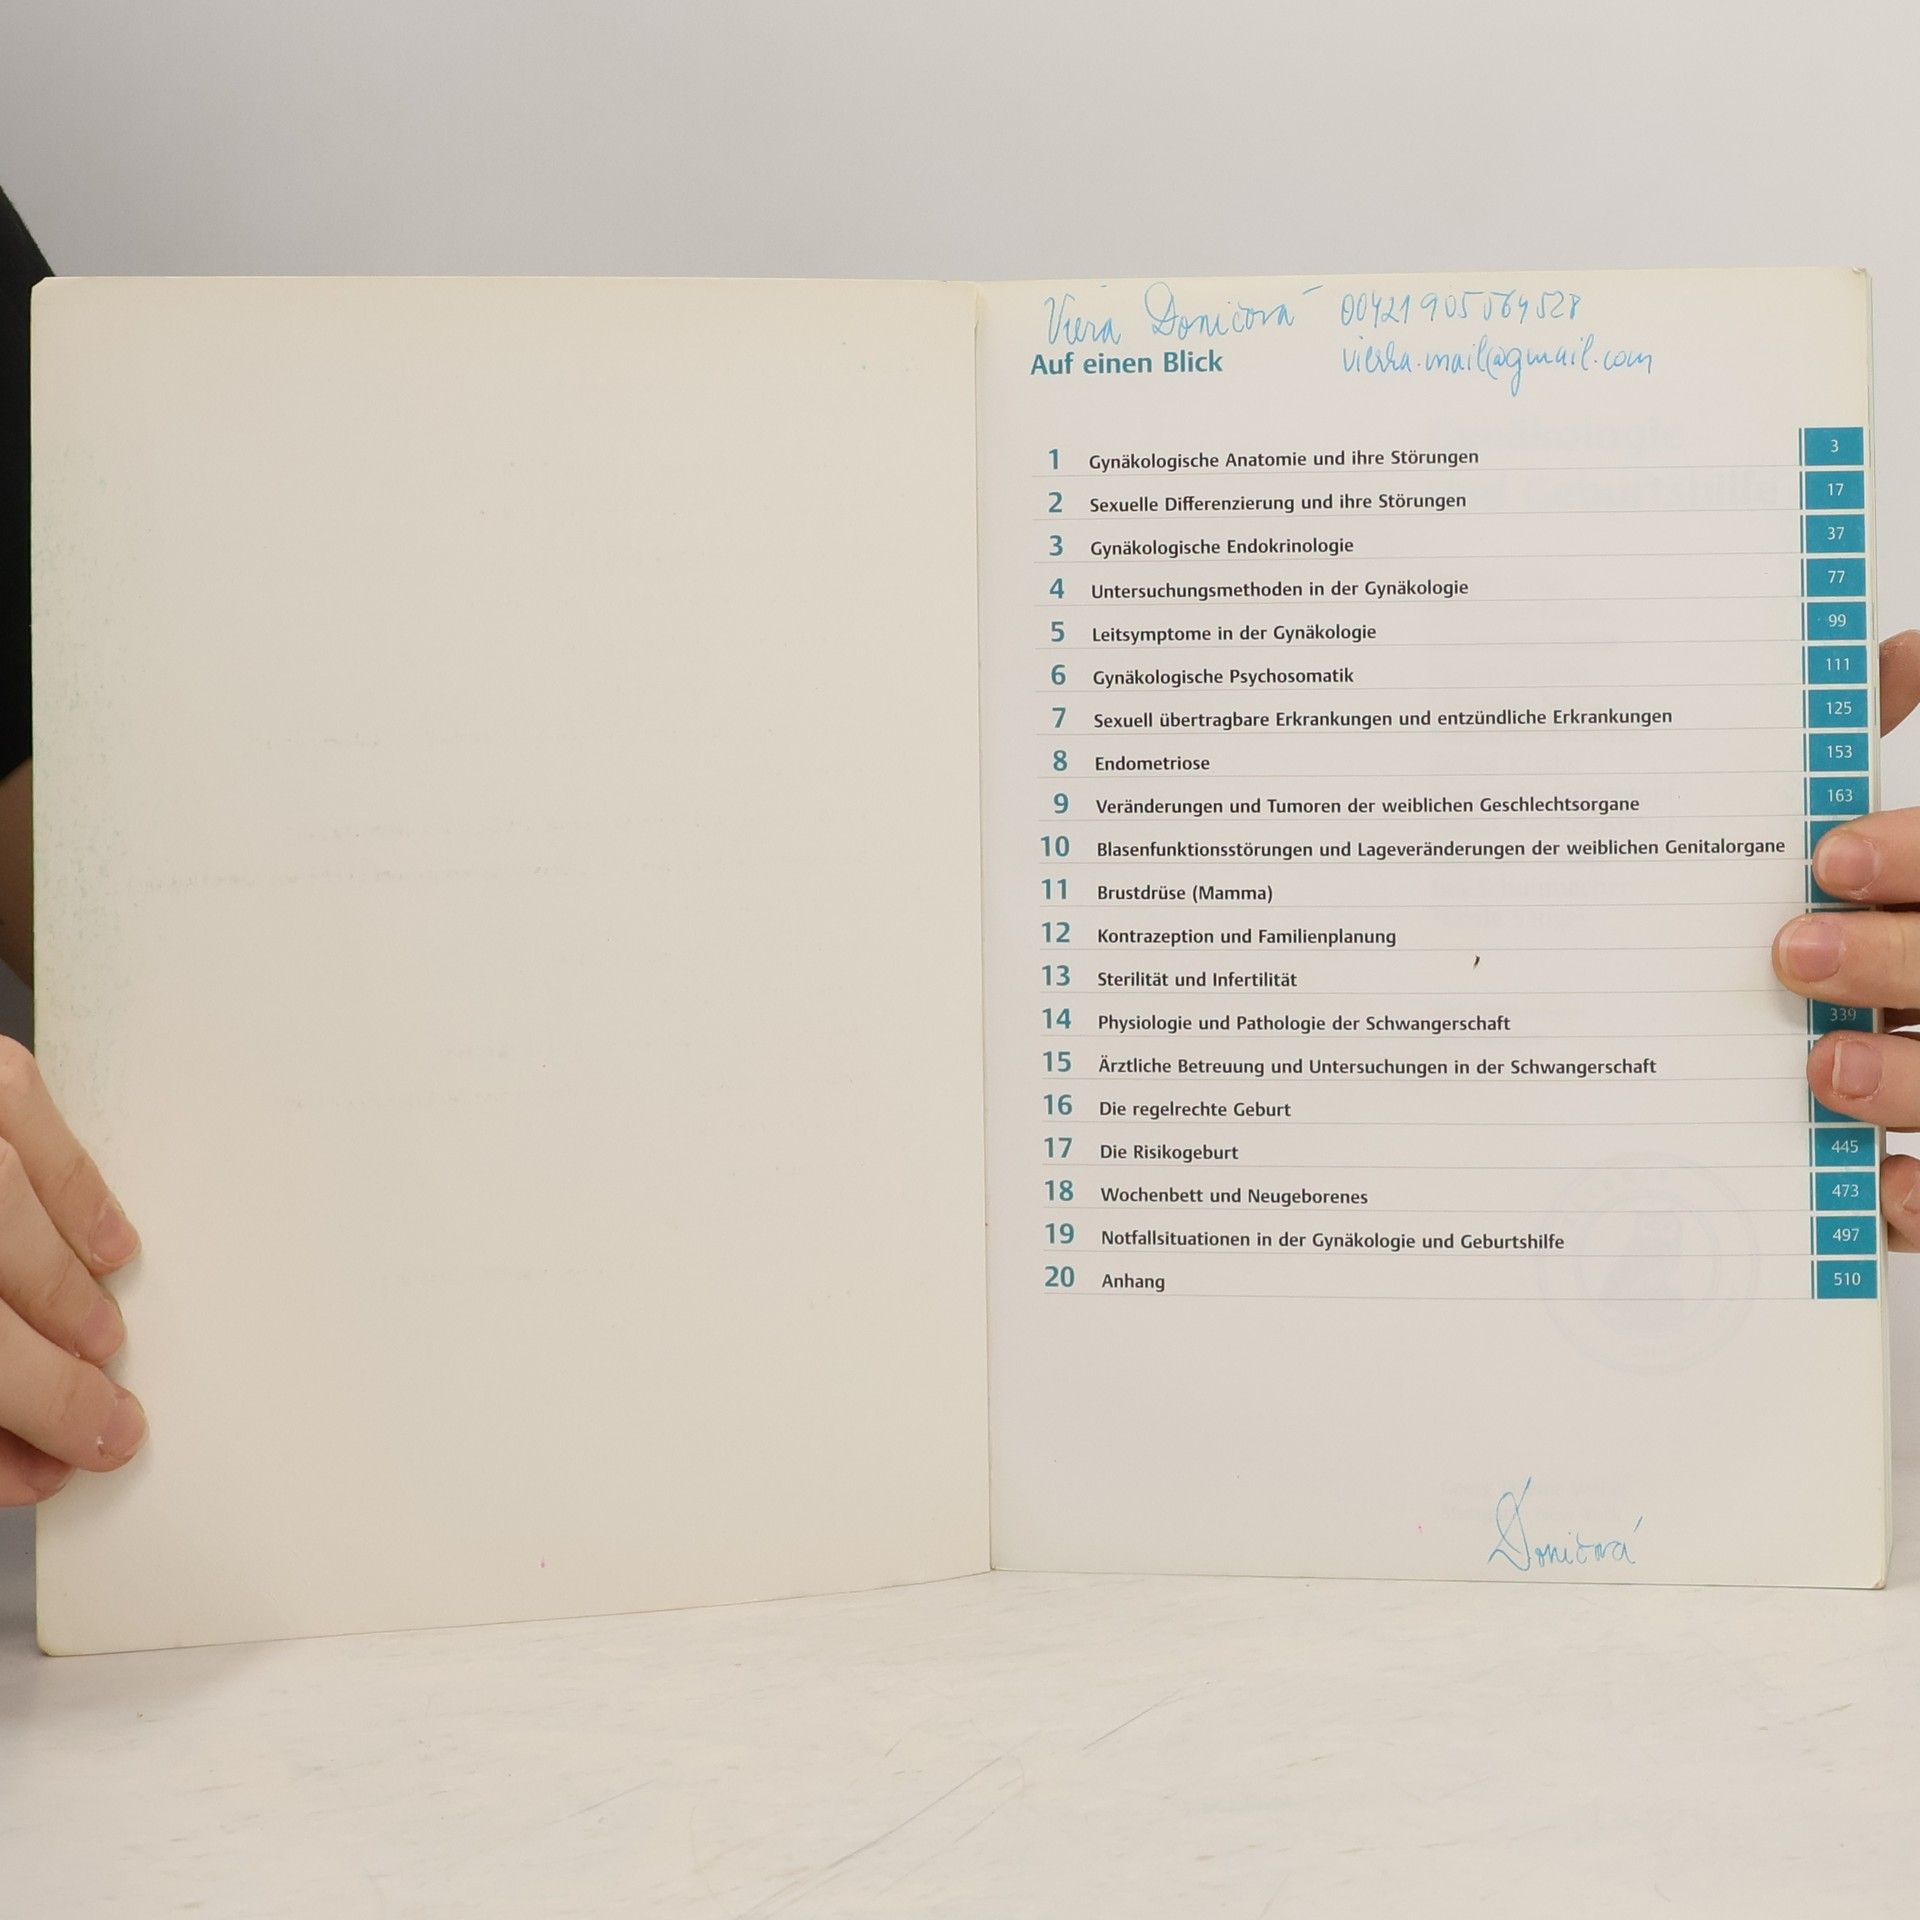 Viera Doničová 00421 905 564 528
Auf einen Blick
vierka.mail@gmail.com
1 Gynäkologische Anatomie und ihre Störungen 3
2 Sexuelle Differenzierung und ihre Störungen 17
3 Gynäkologische Endokrinologie 37
4 Untersuchungsmethoden in der Gynäkologie 77
5 Leitsymptome in der Gynäkologie 99
6 Gynäkologische Psychosomatik 111
7 Sexuell übertragbare Erkrankungen und entzündliche Erkrankungen 125
8 Endometriose 153
9 Veränderungen und Tumoren der weiblichen Geschlechtsorgane 163
10 Blasenfunktionsstörungen und Lageveränderungen der weiblichen Genitalorgane
11 Brustdrüse (Mamma)
12 Kontrazeption und Familienplanung
13 Sterilität und Infertilität
14 Physiologie und Pathologie der Schwangerschaft 339
15 Ärztliche Betreuung und Untersuchungen in der Schwangerschaft
16 Die regelrechte Geburt
17 Die Risikogeburt 445
18 Wochenbett und Neugeborenes 473
19 Notfallsituationen in der Gynäkologie und Geburtshilfe 497
20 Anhang 510
Doničová